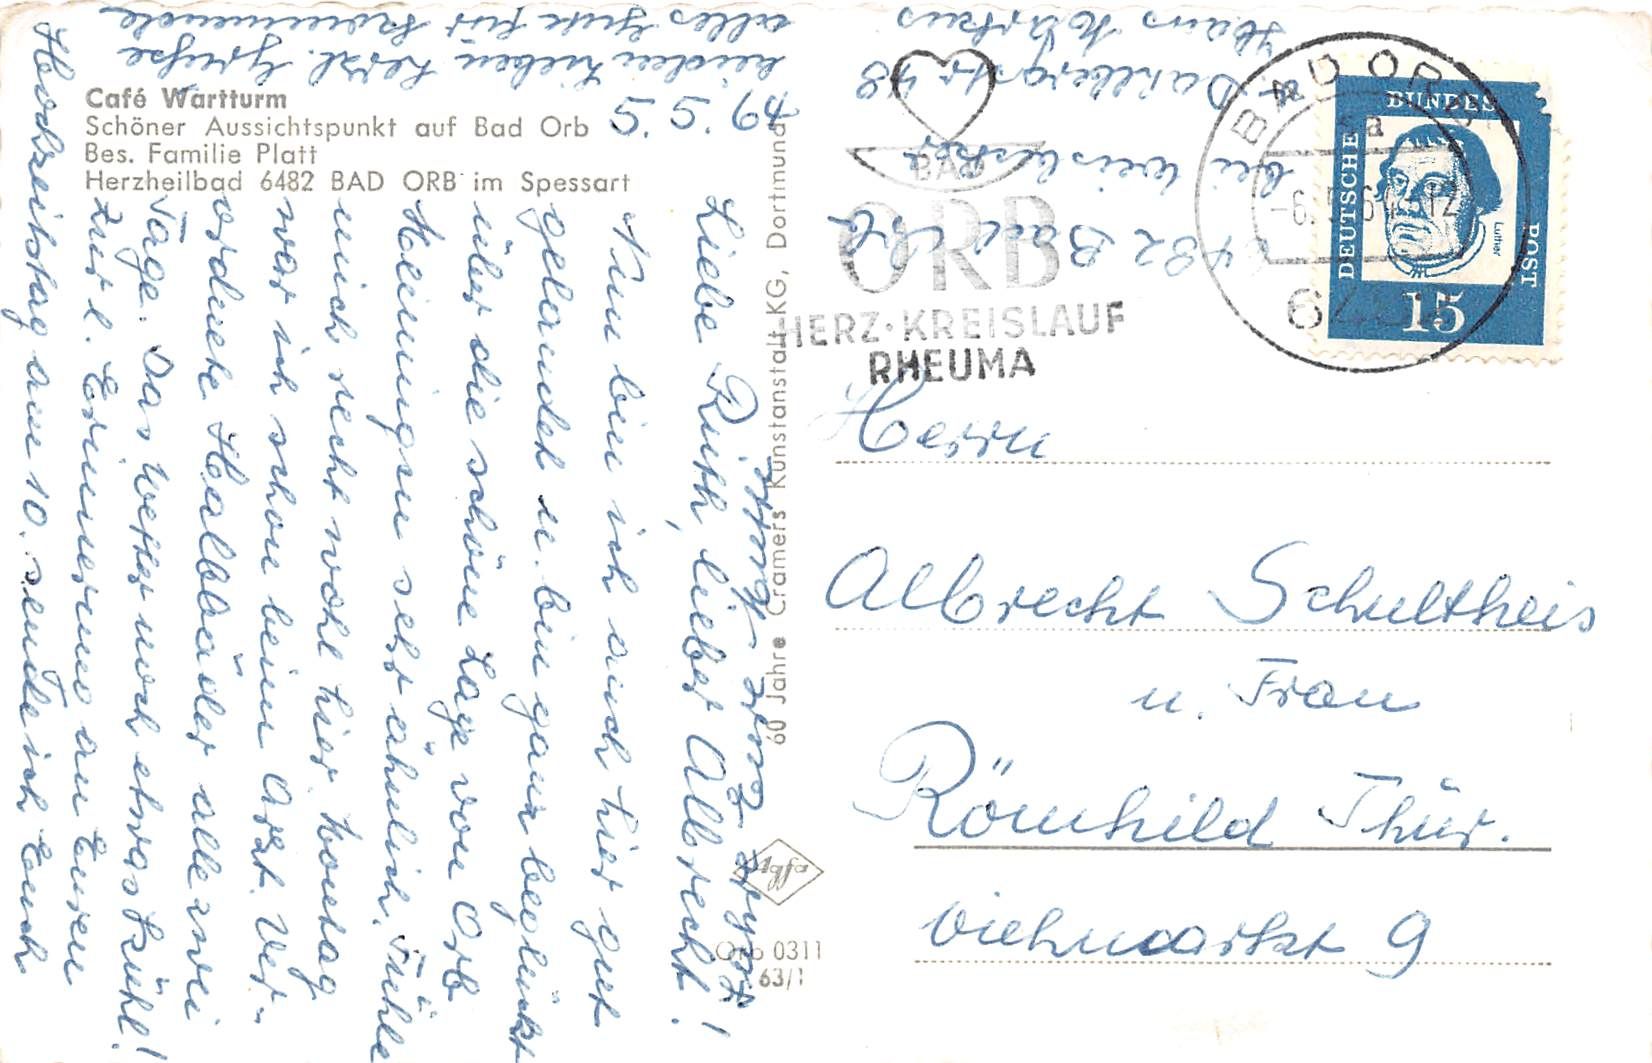 Café Wartturm
Schöner Aussichtspunkt auf Bad Orb
Bes. Familie Platt
Herzheilbad 6482 BAD ORB im Spessart
5. 5. 64
Liebe Ruth, lieber Albrecht!
Nun bin ich auch hier gut
gelandet u. bin ganz beglückt
über die schöne Lage von Orb
Meiningen sehr ähnlich. Fühle
mich recht wohl hier. Montag
war ich schon beim Arzt. Ver-
ordnete Halbbäder alle zwei
Tage. Das Wetter noch etwas kühl!
Zur l. Erinnerung an Euren
Hochzeitstag am 10. sende ich Euch
beiden Lieben herzl. Grüße
alles Gute für kommende
60 Jahre Cramers Kunstanstalt KG, Dortmund
Agfa
Orb 0311
63/1
Haus
48
bei
6482 Bad Orb
BAD
ORB
HERZ·KREISLAUF
RHEUMA
BAD ORB
a
6482
DEUTSCHE
BUNDES
POST
Luther
15
Herrn
Albrecht Schultheis
u. Frau
Römhild Thür.
Viehmarkt 9